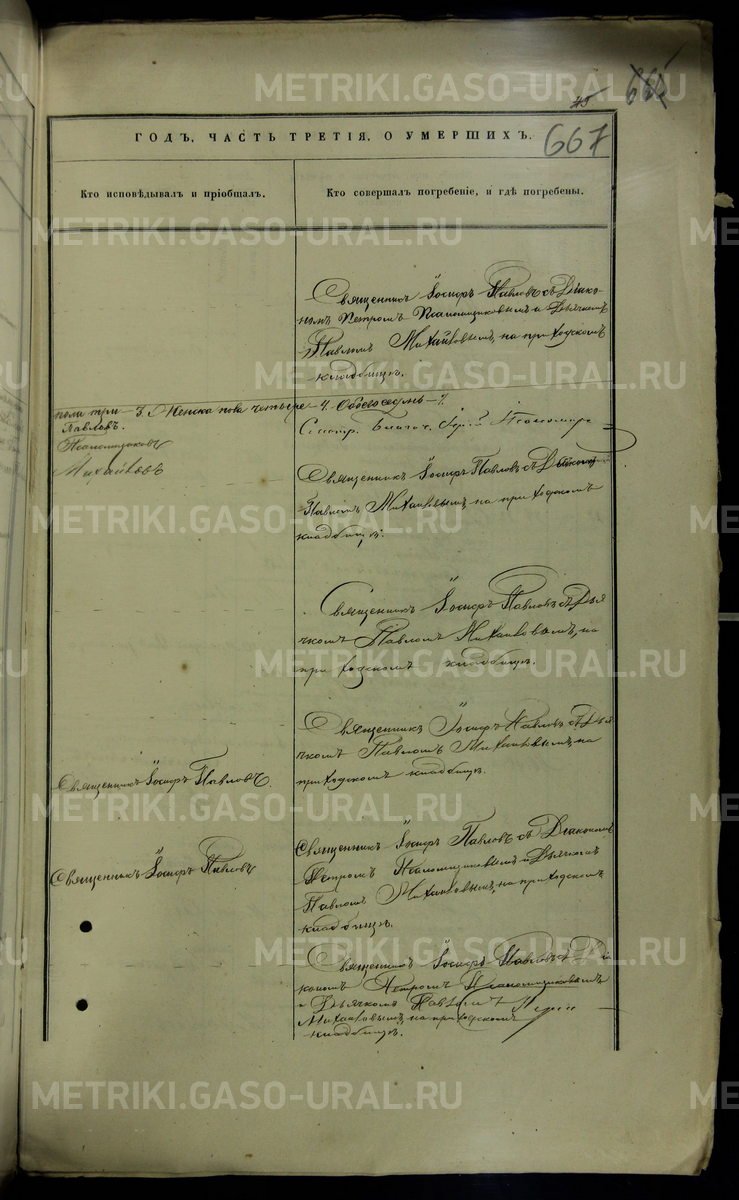 665
45
667
ГОДЪ, ЧАСТЬ ТРЕТІЯ, О УМЕРШИХЪ.
Кто исповѣдывалъ и пріобщалъ.
Кто совершалъ погребеніе, и гдѣ погребены.
Священникъ Іосифъ Павловъ съ Діако-
номъ Петромъ Псаломщиковымъ и Дьячкомъ
Павломъ Михайловымъ, на приходскомъ
кладбищѣ.
пола три — 3. Женска пола четыре — 4. Обоего семь — 7.
Павловъ.
Псаломщиковъ
Михайловъ
Священникъ Іосифъ Павловъ съ
Павломъ Михайловымъ, на приходскомъ
кладбищѣ.
Священникъ Іосифъ Павловъ съ Дья
чкомъ Павломъ Михайловымъ, на
приходскомъ кладбищѣ.
Священникъ Іосифъ Павловъ съ Дья
чкомъ Павломъ Михайловымъ, на
приходскомъ кладбищѣ.
Священникъ Іосифъ Павловъ.
Священникъ Іосифъ Павловъ съ Діакономъ
Петромъ Псаломщиковымъ и Дьячкомъ
Павломъ Михайловымъ, на приходскомъ
кладбищѣ.
Священникъ Іосифъ Павловъ
Священникъ Іосифъ Павловъ съ Діа
кономъ Петромъ Псаломщиковымъ
и Дьячкомъ Павломъ
Михайловымъ, на приходскомъ
кладбищѣ.
METRIKI.GASO-URAL.RU